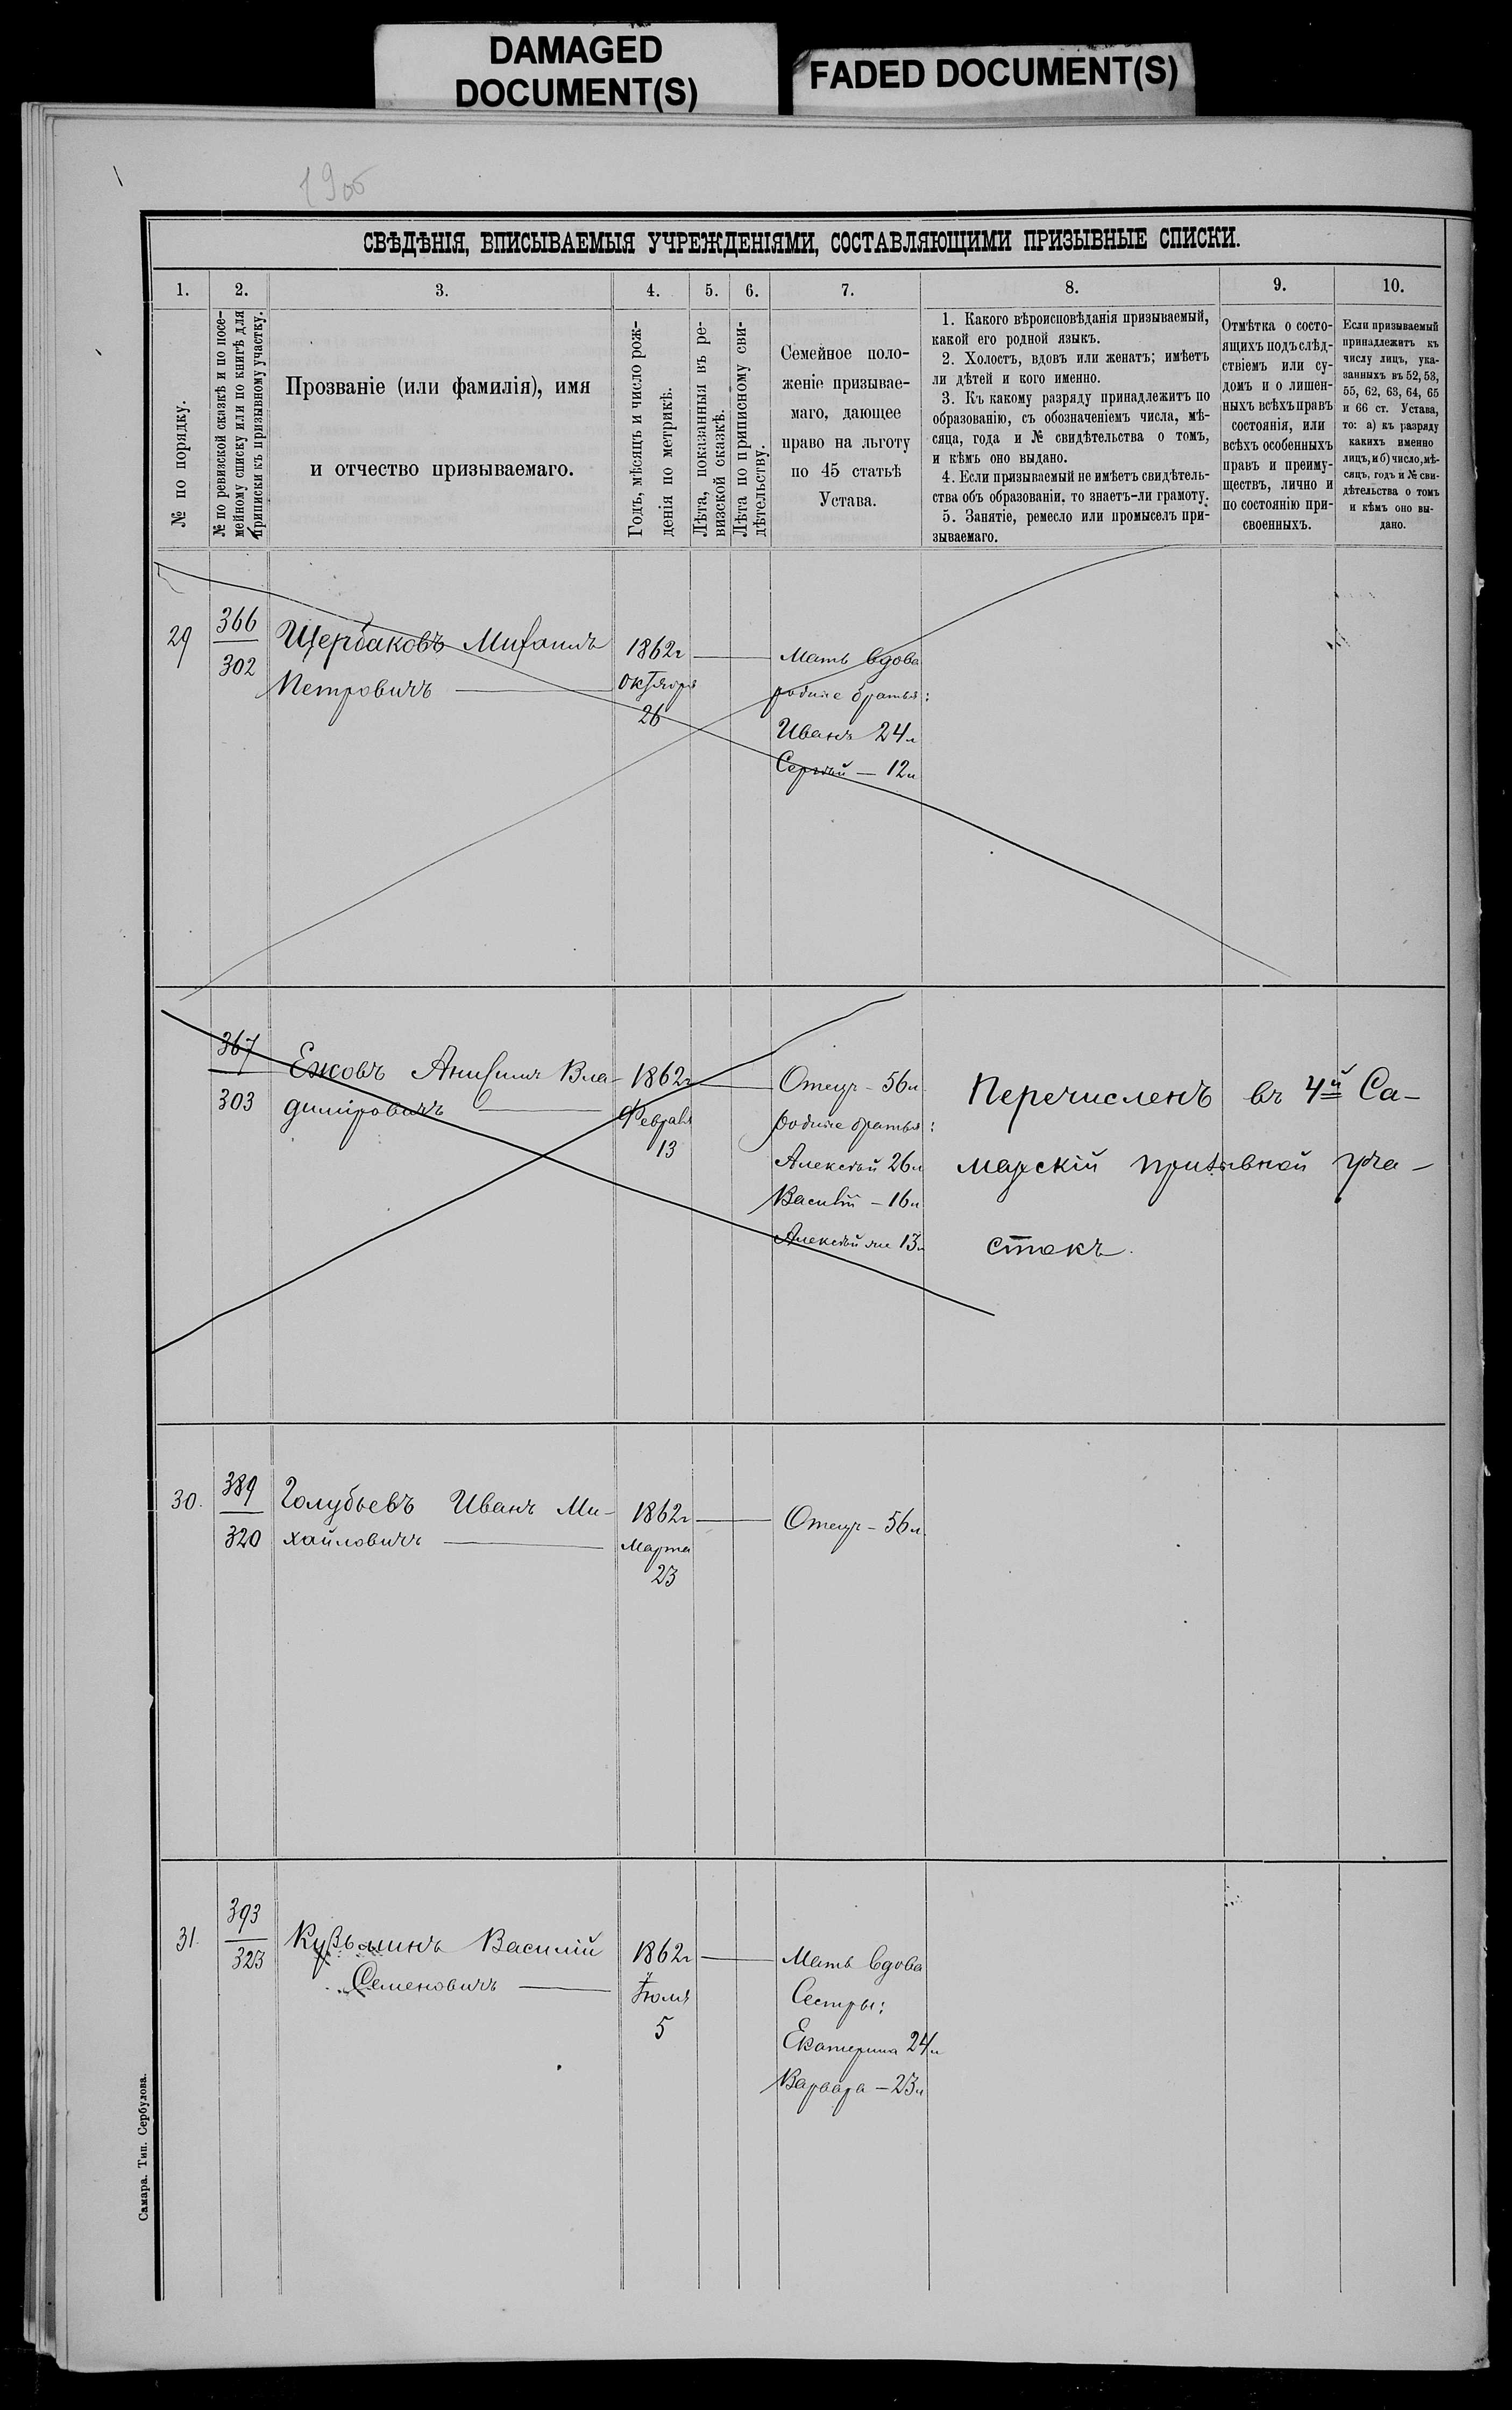 DAMAGED
DOCUMENT(S)
FADED DOCUMENT(S)
СВѢДѢНІЯ, ВПИСЫВАЕМЫЯ УЧРЕЖДЕНІЯМИ, СОСТАВЛЯЮЩИМИ ПРИЗЫВНЫЕ СПИСКИ.
1. 2. 3. 4. 5. 6. 7. 8. 9. 10.
№ по порядку.
№ по ревизской сказкѣ и по посе-
мейному списку или по книгѣ для
приписки къ призывному участку.
Прозваніе (или фамилія), имя
и отчество призываемаго.
Годъ, мѣсяцъ и число рож-
денія по метрикѣ.
Лѣта, показанныя въ ре-
визской сказкѣ.
Лѣта по приписному сви-
дѣтельству.
Семейное поло-
женіе призывае-
маго, дающее
право на льготу
по 45 статьѣ
Устава.
1. Какого вѣроисповѣданія призываемый,
какой его родной языкъ.
2. Холостъ, вдовъ или женатъ; имѣетъ
ли дѣтей и кого именно.
3. Къ какому разряду принадлежитъ по
образованію, съ обозначеніемъ числа, мѣ-
сяца, года и № свидѣтельства о томъ,
и кѣмъ оно выдано.
4. Если призываемый не имѣетъ свидѣтель-
ства объ образованіи, то знаетъ-ли грамоту.
5. Занятіе, ремесло или промыселъ при-
зываемаго.
Отмѣтка о состо-
ящихъ подъ слѣд-
ствіемъ или су-
домъ и о лишен-
ныхъ всѣхъ правъ
состоянія, или
всѣхъ особенныхъ
правъ и преиму-
ществъ, лично и
по состоянію при-
своенныхъ.
Если призываемый
принадлежитъ къ
числу лицъ, ука-
занныхъ въ 52, 53,
55, 62, 63, 64, 65
и 66 ст. Устава,
то: а) къ разряду
какихъ именно
лицъ, и б) число, мѣ-
сяцъ, годъ и № сви-
дѣтельства о томъ
и кѣмъ оно вы-
дано.
29
366
302
Щербаковъ
Петровичъ
1862г
Октября
26
Мать вдова
родные братья:
Иванъ 24л
Сергѣй — 12л
367
303
Ежовъ Анисимъ Вла-
диміровичъ
1862г
Февраля
13
Отецъ - 56л
родные братья:
Алексѣй 26л
Василій - 16л
Алексѣй же 13л
Перечисленъ въ 4й Са-
марскій призывной уча-
стокъ.
30.
389
320
Голубьевъ Иванъ Ми-
хайловичъ
1862г
Марта
23
Отецъ - 56л.
31.
393
323
Кузьминъ Василій
Семеновичъ
1862г
Іюля
5
Мать вдова
Сестры:
Екатерина 24л
Варвара - 23л
Самара. Тип. Сербулова.